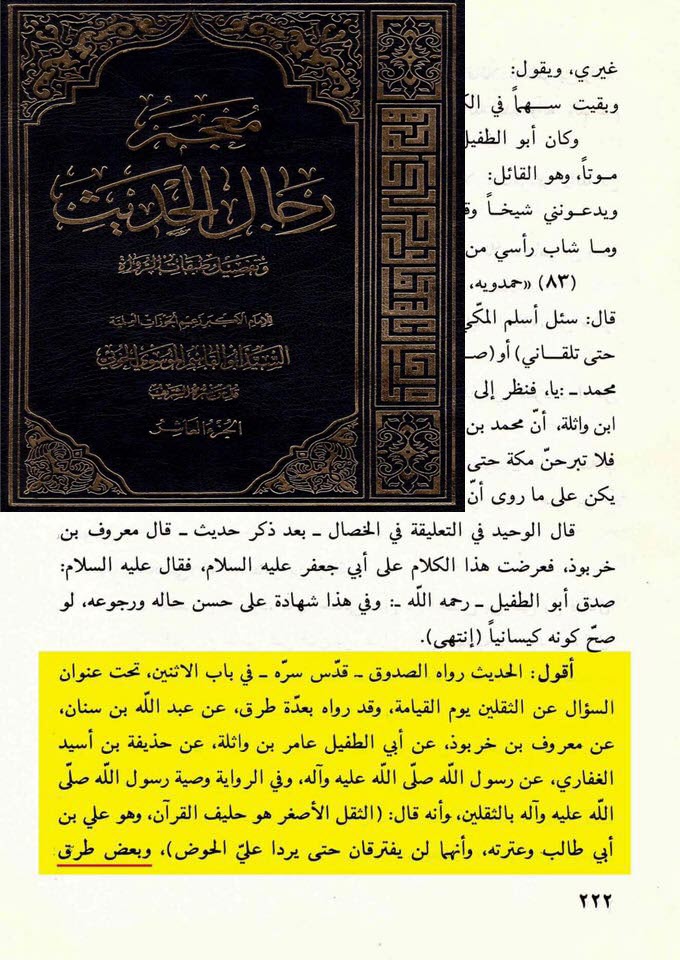 معجم
رجال الحديث
وتفصيل طبقات الرواة
للإمام الأكبر زعيم الحوزات العلمية
السيد أبو القاسم الموسوي الخوئي
قدس سره الشريف
الجزء العاشر
غيري، ويقول:
وبقيت سـهماً في
وكان أبو الطفيل
مـوتاً، وهو القائل:
ويدعـونني شيخـاً
ومـا شاب رأسي من
(٨٣) «حمدويه،
قال: سئل أسلم المكّي
حتى تلقـاني) أو (
محمد ـ :يا، فنظر إلى
ابن واثلة، أنّ محمد بن
فلا تبرحنّ مكة حتى
يكن على ما روى أنّ
قال الوحيد في التعليقة في الخصال ـ بعد ذكر حديث ـ قال معروف بن
خربوذ، فعرضت هذا الكلام على أبي جعفر عليه السلام، فقال عليه السلام:
صدق أبو الطفيل ـ رحمه اللّه ـ: وفي هذا شهادة على حسن حاله ورجوعه، لو
صحّ كونه كيسانياً (إنتهى).
أقول: الحديث رواه الصدوق ـ قدّس سرّه ـ في باب الاثنين، تحت عنوان
السؤال عن الثقلين يوم القيامة، وقد رواه بعدّة طرق، عن عبد اللّه بن سنان،
عن معروف بن خربوذ، عن أبي الطفيل عامر بن واثلة، عن حذيفة بن أسيد
الغفاري، عن رسول اللّه صلّى اللّه عليه وآله، وفي الرواية وصية رسول اللّه صلّى
اللّه عليه وآله بالثقلين، وأنه قال: (الثقل الأصغر هو حليف القرآن، وهو علي بن
أبي طالب وعترته، وأنهما لن يفترقان حتى يردا عليّ الحوض)، وبعض طرق
٢٢٢